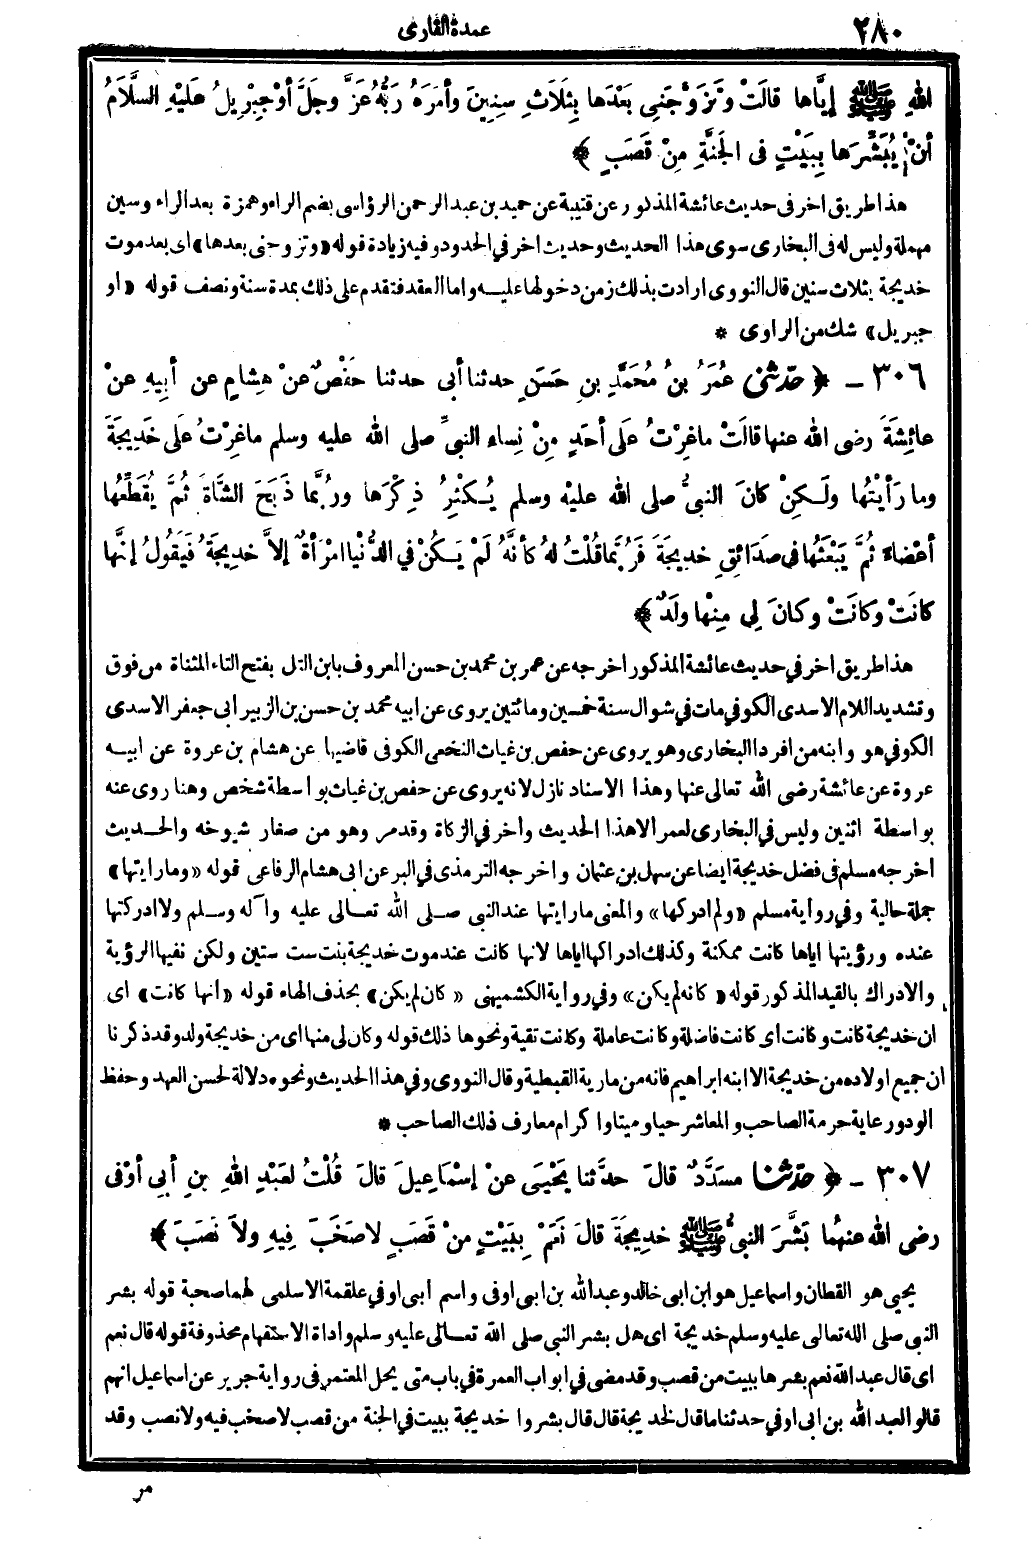 ٢٨٠
عمدة القارى
اللهِ ﷺ إيَّاها قالَتْ وتَزَوَّجَنِى بَعْدَها بِثَلَاثِ سِنِينَ وأمَرَهُ رَبُّهُ عَزَّ وجَلَّ أوْ جِبْرِيلُ عَلَيْهِ السَّلَامُ
أنْ يُبَشِّرَها بِبَيْتٍ فى الجَنَّةِ مِنْ قَصَبٍ ﴾
هذا طريق اخر فى حديث عائشة المذكور عن قتيبة عن حميد بن عبد الرحمن الرؤاسى بضم الراء وهمزة بعد الراء وسين
مهملة وليس له فى البخارى سوى هذا الحديث وحديث اخر في الحدود وفيه زيادة قوله «وتزوجنى بعدها» اى بعد موت
خديجة بثلاث سنين قال النووى ارادت بذلك زمن دخولها عليه واما العقد فتقدم على ذلك بمدة سنة ونصف قوله «او
جبريل» شك من الراوى *
٣٠٦ - ﴿ حدّثنى عُمَرُ بنُ مُحَمَّدِ بنِ حَسَنٍ حدثنا أبى حدثنا حَفْصٌ عنْ هِشامٍ عن أبِيهِ عنْ
عائِشَةَ رضى الله عنها قالَتْ ماغِرْتُ عَلَى أحَدٍ مِنْ نِساءِ النبىِّ صلى الله عليه وسلم ماغِرْتُ عَلَى خَدِيجَةَ
وما رَأيْتُها ولَكِنْ كانَ النبىُّ صلى الله عليْه وسلم يُكْثِرُ ذِكْرَها ورُبَّما ذَبَحَ الشَّاةَ ثُمَّ يُقَطِّعُها
أعْضاءً ثُمَّ يَبْعَثُها فى صَدَائِقِ خدِيجَةَ فَرُبَّما قُلْتُ لهُ كأنَّهُ لَمْ يَكُنْ في الدُّنْيا امْرَأةٌ إلاَّ خدِيجَةُ فَيَقُولُ إنَّها
كانَتْ وكانَتْ وكانَ لِى مِنْها ولَدٌ ﴾
هذا طريق اخر في حديث عائشة المذكور اخرجه عن عمر بن محمد بن حسن المعروف بابن التل بفتح التاء المثناة من فوق
وتشديد اللام الاسدى الكوفي مات في شوال سنة خمسين ومائتين يروى عن ابيه محمد بن حسن بن الزبير ابى جعفر الاسدى
الكوفي هو وابنه من افرد البخارى وهو يروى عن حفص بن غياث النخعى الكوفى قاضيها عن هشام بن عروة عن ابيه
عروة عن عائشة رضى الله تعالى عنها وهذا الاسناد نازل لانه يروى عن حفص بن غياث بواسطة شخص وهنا روى عنه
بواسطة اثنين وليس في البخارى لعمر الا هذا الحديث واخر في الزكاة وقد مر وهو من صغار شيوخه والحديث
اخرجه مسلم فى فضل خديجة ايضا عن سهل بن عثمان واخرجه الترمذى في البر عن ابى هشام الرفاعى قوله «وما رايتها»
جملة حالية وفي رواية مسلم «ولم ادركها» والمعنى ما رايتها عند النبى صلى الله تعالى عليه وآله وسلم ولا ادركتها
عنده ورؤيتها اياها كانت ممكنة وكذلك ادراكها اياها لانها كانت عند موت خديجة بنت ست سنين ولكن نفيها الرؤية
والادراك بالقيد المذكور قوله «كانه لم يكن» وفي رواية الكشميهنى «كان لم يكن» بحذف الهاء قوله «انها كانت» اى
ان خديجة كانت وكانت اى كانت فاضلة وكانت عاملة وكانت تقية ونحوها ذلك قوله وكان لى منها اى من خديجة ولد وقد ذكرنا
ان جميع اولاده من خديجة الا ابنه ابراهيم فانه من مارية القبطية وقال النووى وفي هذا الحديث ونحوه دلالة لحسن العهد وحفظ
الود ورعاية حرمة الصاحب والمعاشر حيا وميتا واكرام معارف ذلك الصاحب *
٣٠٧ - ﴿ حدّثنا مسَدَّدٌ قالَ حدَّثنا يَحْيَى عنْ إسْمَاعِيلَ قالَ قُلْتُ لعَبْدِ اللهِ بنِ أبِى أوْفى
رضى الله عنهُما بَشَّرَ النبىُّ ﷺ خدِيجَةَ قالَ نَعَمْ بِبَيْتٍ مِنْ قَصَبٍ لاصَخَبَ فِيهِ ولاَ نَصَبَ ﴾
يحيى هو القطان واسماعيل هو ابن ابى خالد وعبد الله بن ابى اوفى واسم أبى اوفي علقمة الاسلمى لهما صحبة قوله بشر
النبى صلى الله تعالى عليه وسلم خديجة اى هل بشر النبى صلى الله تعالى عليه وسلم واداة الاستفهام محذوفة قوله قال نعم
اى قال عبد الله نعم بشرها ببيت من قصب وقد مضى في ابواب العمرة في باب متى يحل المعتمر فى رواية جرير عن اسماعيل انهم
قالوا لعبد الله بن ابى اوفي حدثنا ما قال لخديجة قال قال بشروا خديجة ببيت في الجنة من قصب لا صخب فيه ولا نصب وقد
مر